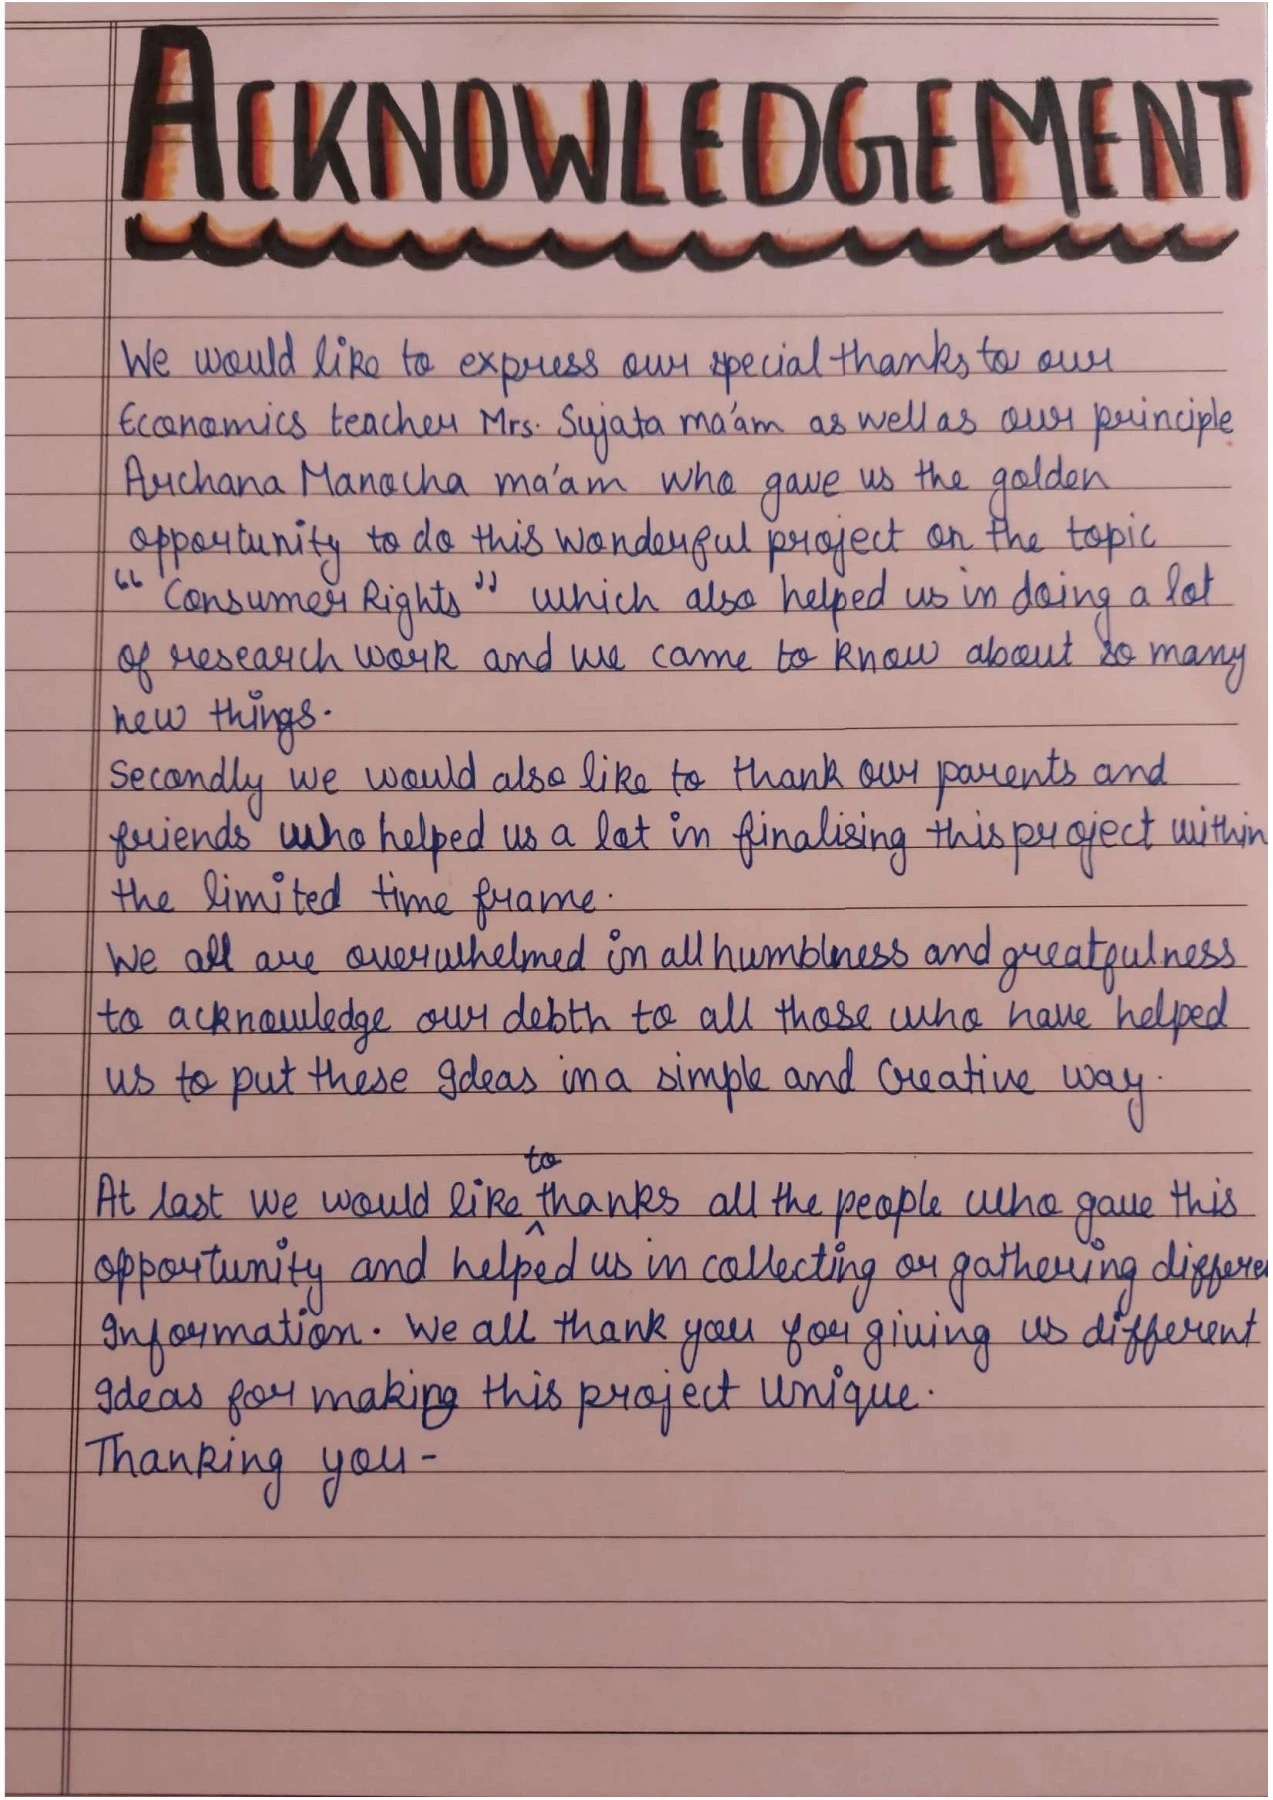 ACKNOWLEDGEMENT
We would like to express our special thanks to our
Economics teacher Mrs. Sujata ma'am as well as our principle
Archana Manocha ma'am who gave us the golden
opportunity to do this wonderful project on the topic
"Consumer Rights" which also helped us in doing a lot
of research work and we came to know about so many
new things.
Secondly we would also like to thank our parents and
friends who helped us a lot in finalising this project within
the limited time frame.
We all are overwhelmed in all humblness and greatfulness
to acknowledge our debth to all those who have helped
us to put these Ideas in a simple and Creative way.
At last we would like to thanks all the people who gave this
opportunity and helped us in collecting or gathering differe
Information. We all thank you for giving us different
Ideas for making this project unique.
Thanking you-